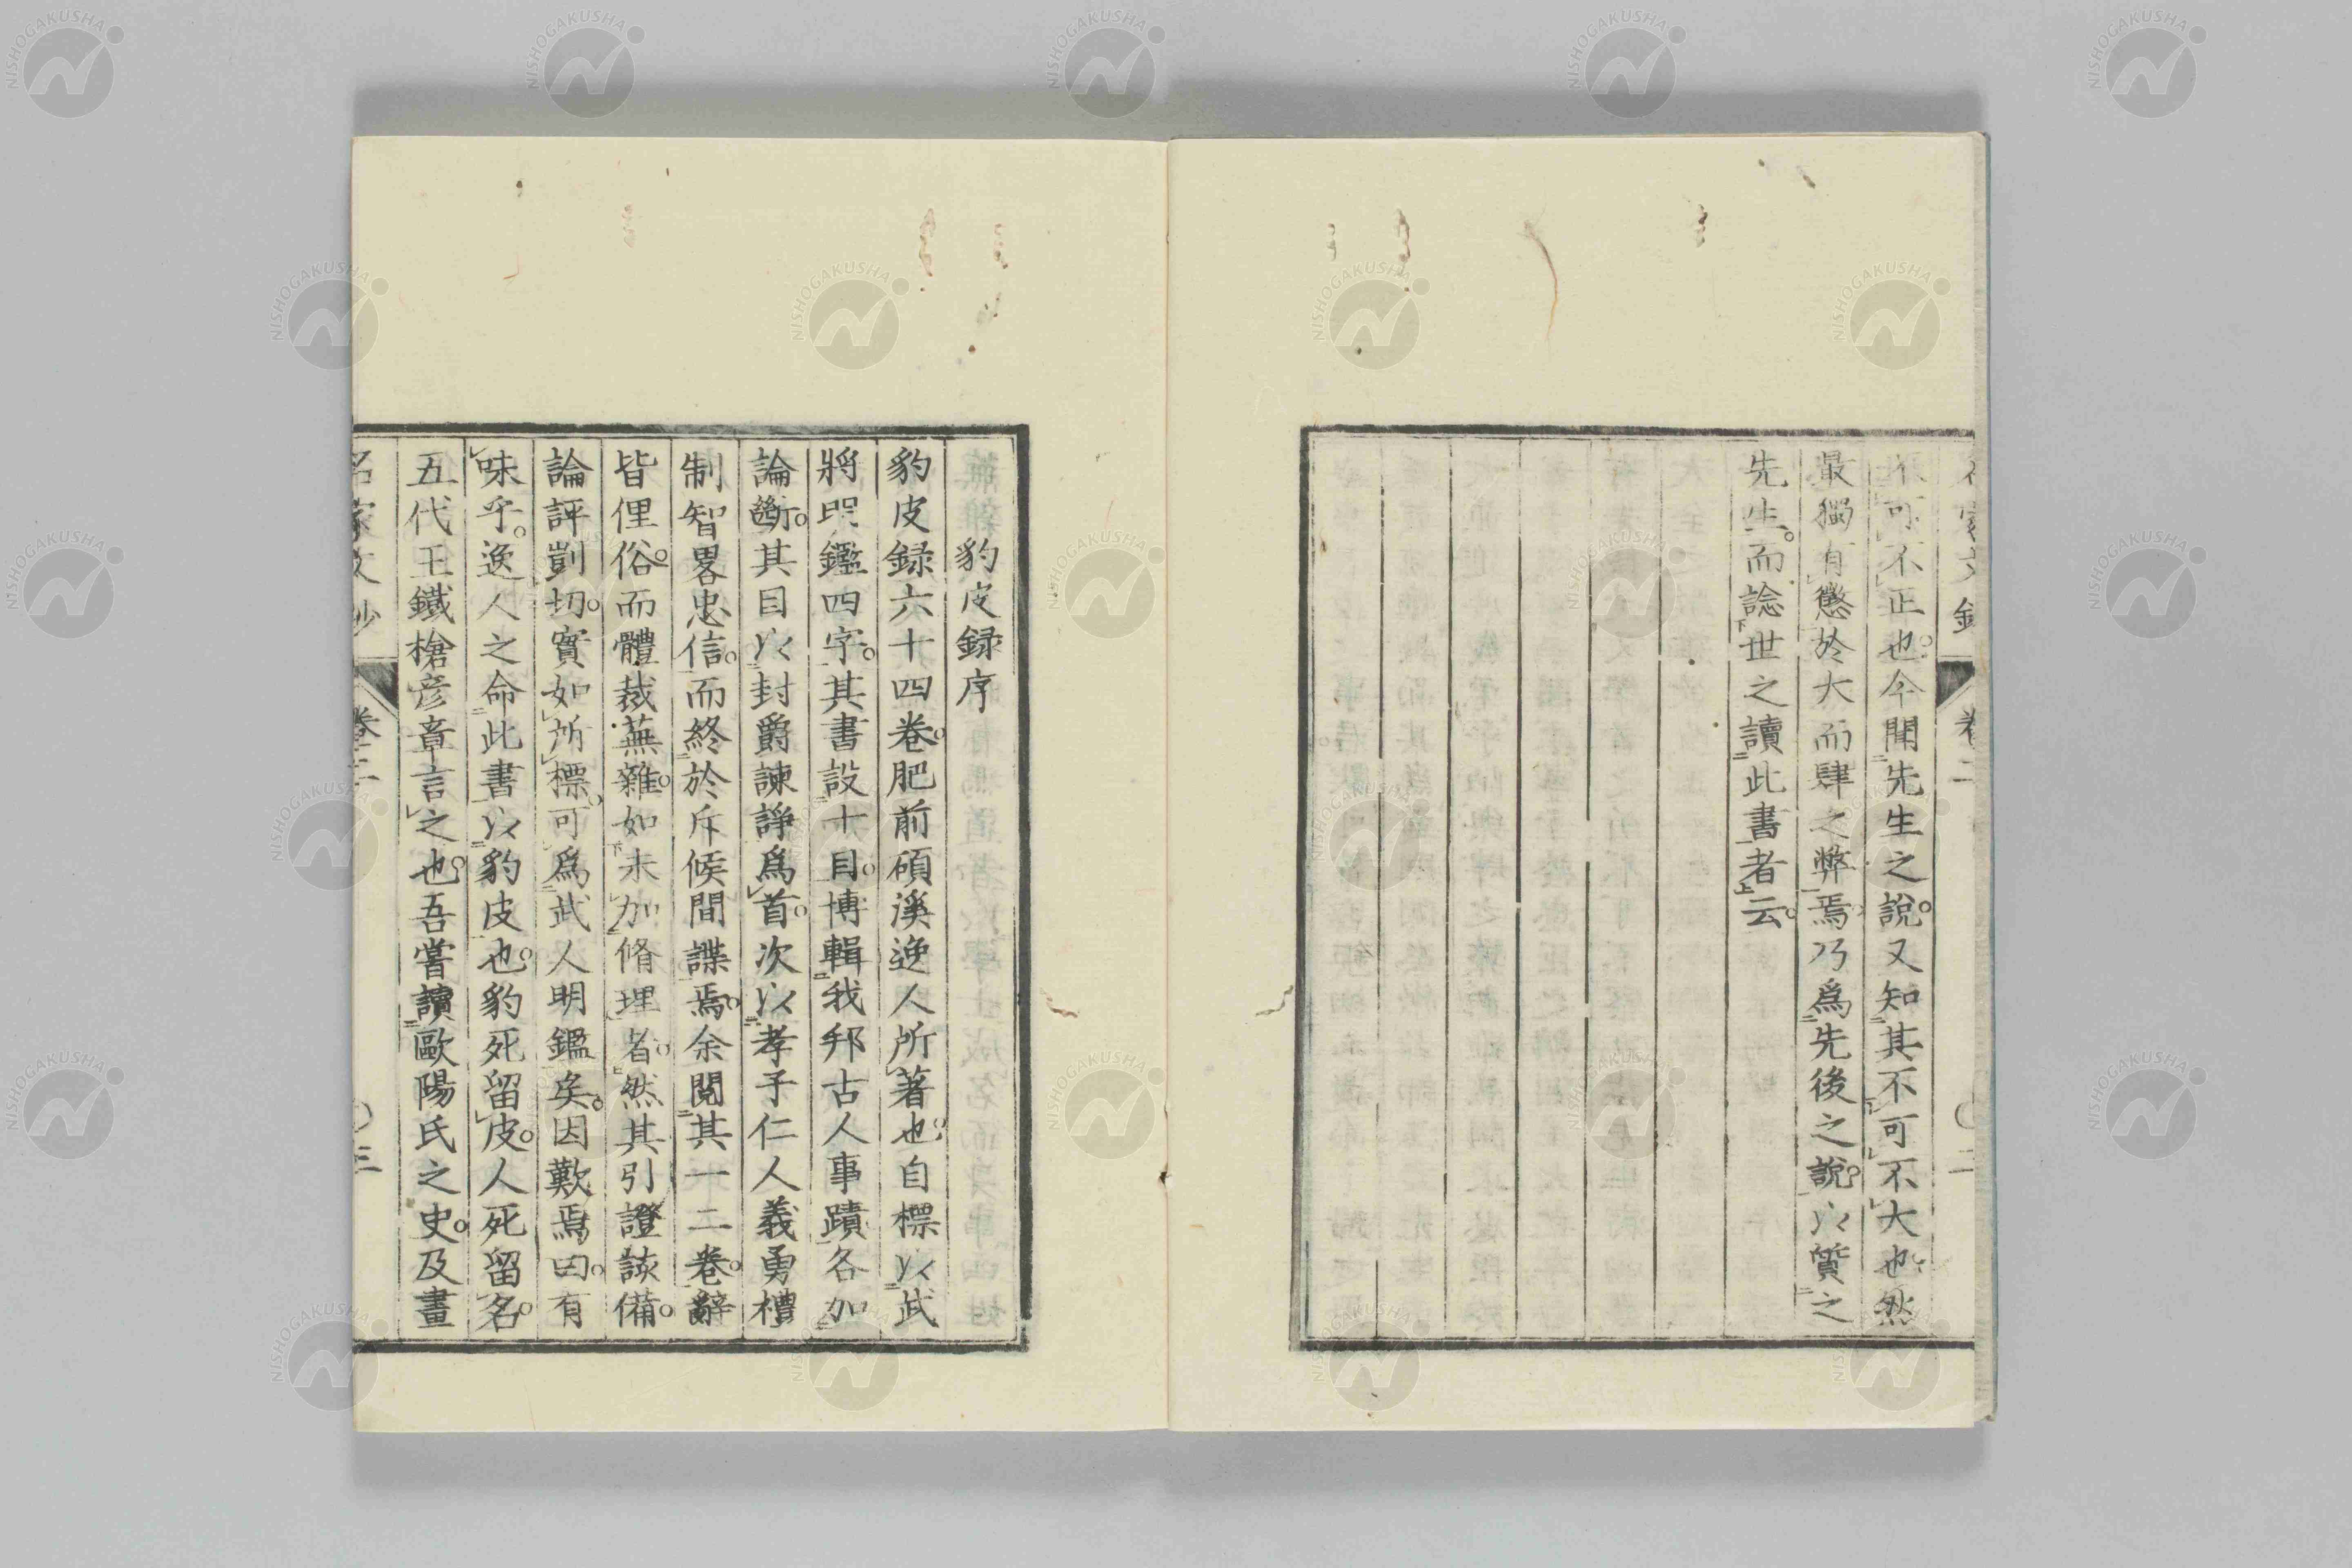 不可不正也。今聞先生之說。又知其不可不大也。然
最獨有懲於大而肆之弊焉。乃爲先後之說。以質之
先生。而諗世之讀此書者云。
卷二
二
豹皮録序
豹皮録六十四卷。肥前碩溪逸人所著也。自標以武
將明鑑四字。其書設十目。博輯我邦古人事蹟。各加
論斷。其目以封爵諫諍爲首。次以孝子仁人義勇禮
制智畧忠信。而終於斥候間諜焉。余閱其一二卷。辭
皆俚俗。而體裁蕪雜。如未加脩理者。然其引證該備。
論評剴切。實如所標。可爲武人明鑑矣。因歎焉曰。有
味乎。逸人之命此書以豹皮也。豹死留皮。人死留名。
五代王鐵槍彦章言之也。吾嘗讀歐陽氏之史。及畫
名家文抄
卷二
三
NISHOGAKUSHA